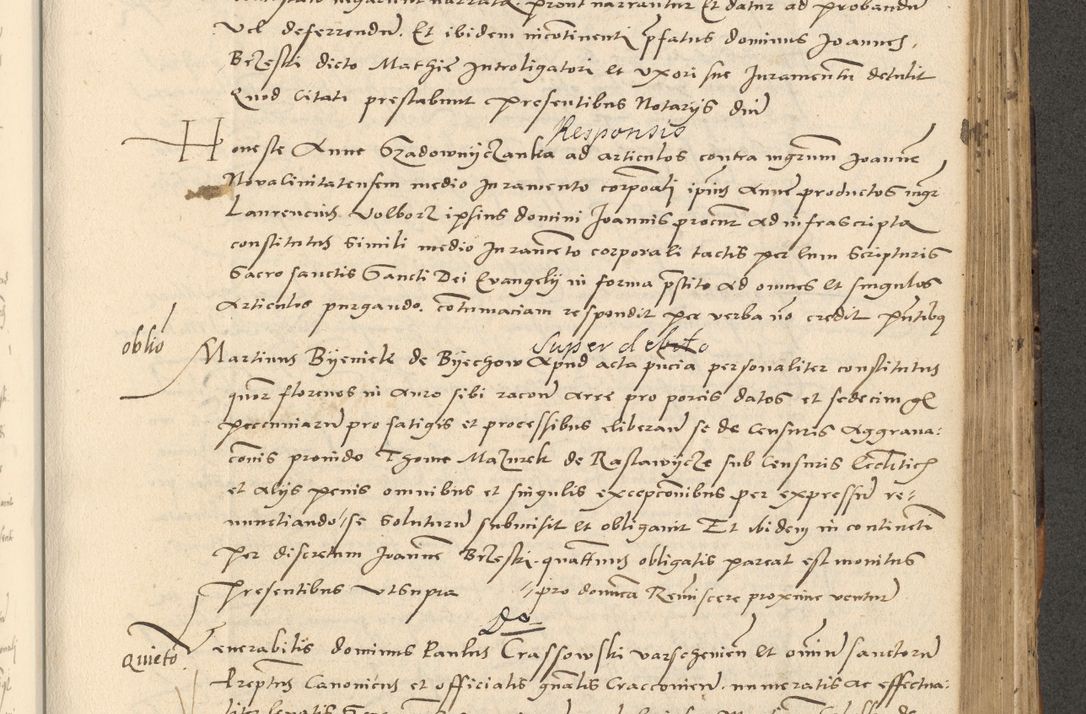 vel deferrendum. Et ibidem incotinenti pfatus dominus Joannes
Brzeski dicto Mathie Introligatori et vxori sue Juramentu detulit
Quod Citati prestabunt presentibus Notarijs
Responsio
Honeste Anne Szadownyczanka ad articulos contra mgrum Joanne
medio Juramento corporali ipius Anne productos mgr
Laurencius Volborz ipsius domini Joannis procur ad infrascripta
constitutus Simili medio Juramento corporali tactis per eum Scripturis
Sacro sanctis Sancti Dei Evangelij in forma pstito ad omnes et singulos
Articulos purgando. contumaciam respondit per verba no credit pntibus
oblio
Super debito
Martinus Byeniek de Byechow Apud acta pucia personaliter constitutus
quor florenos in Auro sibi racone aree pro porcis datos et sedecim gl
pecuniaru pro fatigis et processibus eliberan se de Censuris Aggrava:
conis provido Thome Mazurek de Rastawycze sub Censuris Ecclticis
et alijs penis omnibus et singulis excepconibus per expressu re:
nunctiando se soluturu submisit et obligavit Et ibidem in continenti
per discretum Joanne Brzeski. quattinus obligatis pareat est monitus
Presentibus vtsupra // pro domica Reminiscere proxime ventur
Quieto
Venerabilis dominus Paulus Crassowski varschevien et omniu sanctoru
Preptus Canonicus et officialis gnalis Cracovien. numeratis ac effectua: